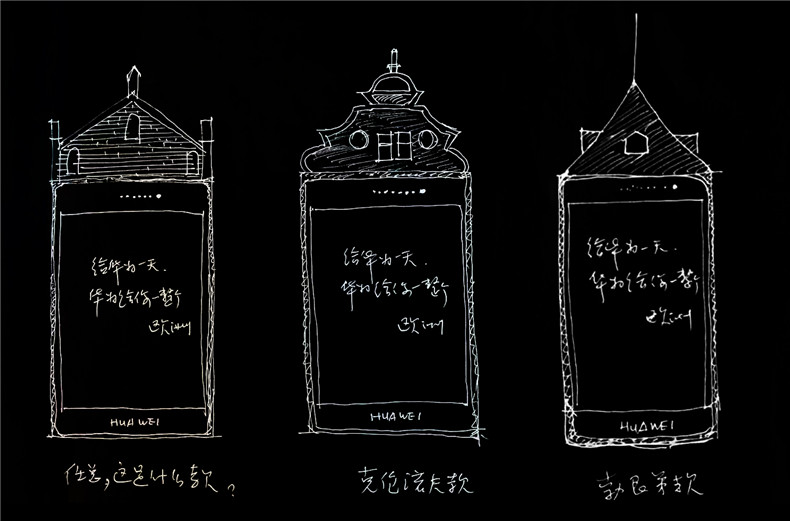 给华为一天.
华为给你一整个
欧洲
HUAWEI
任总,这是什么款?
给华为一天.
华为给你一整个
欧洲
HUAWEI
克伦滚大款
给华为一天.
华为给你一整个
欧洲
HUAWEI
勃艮第款